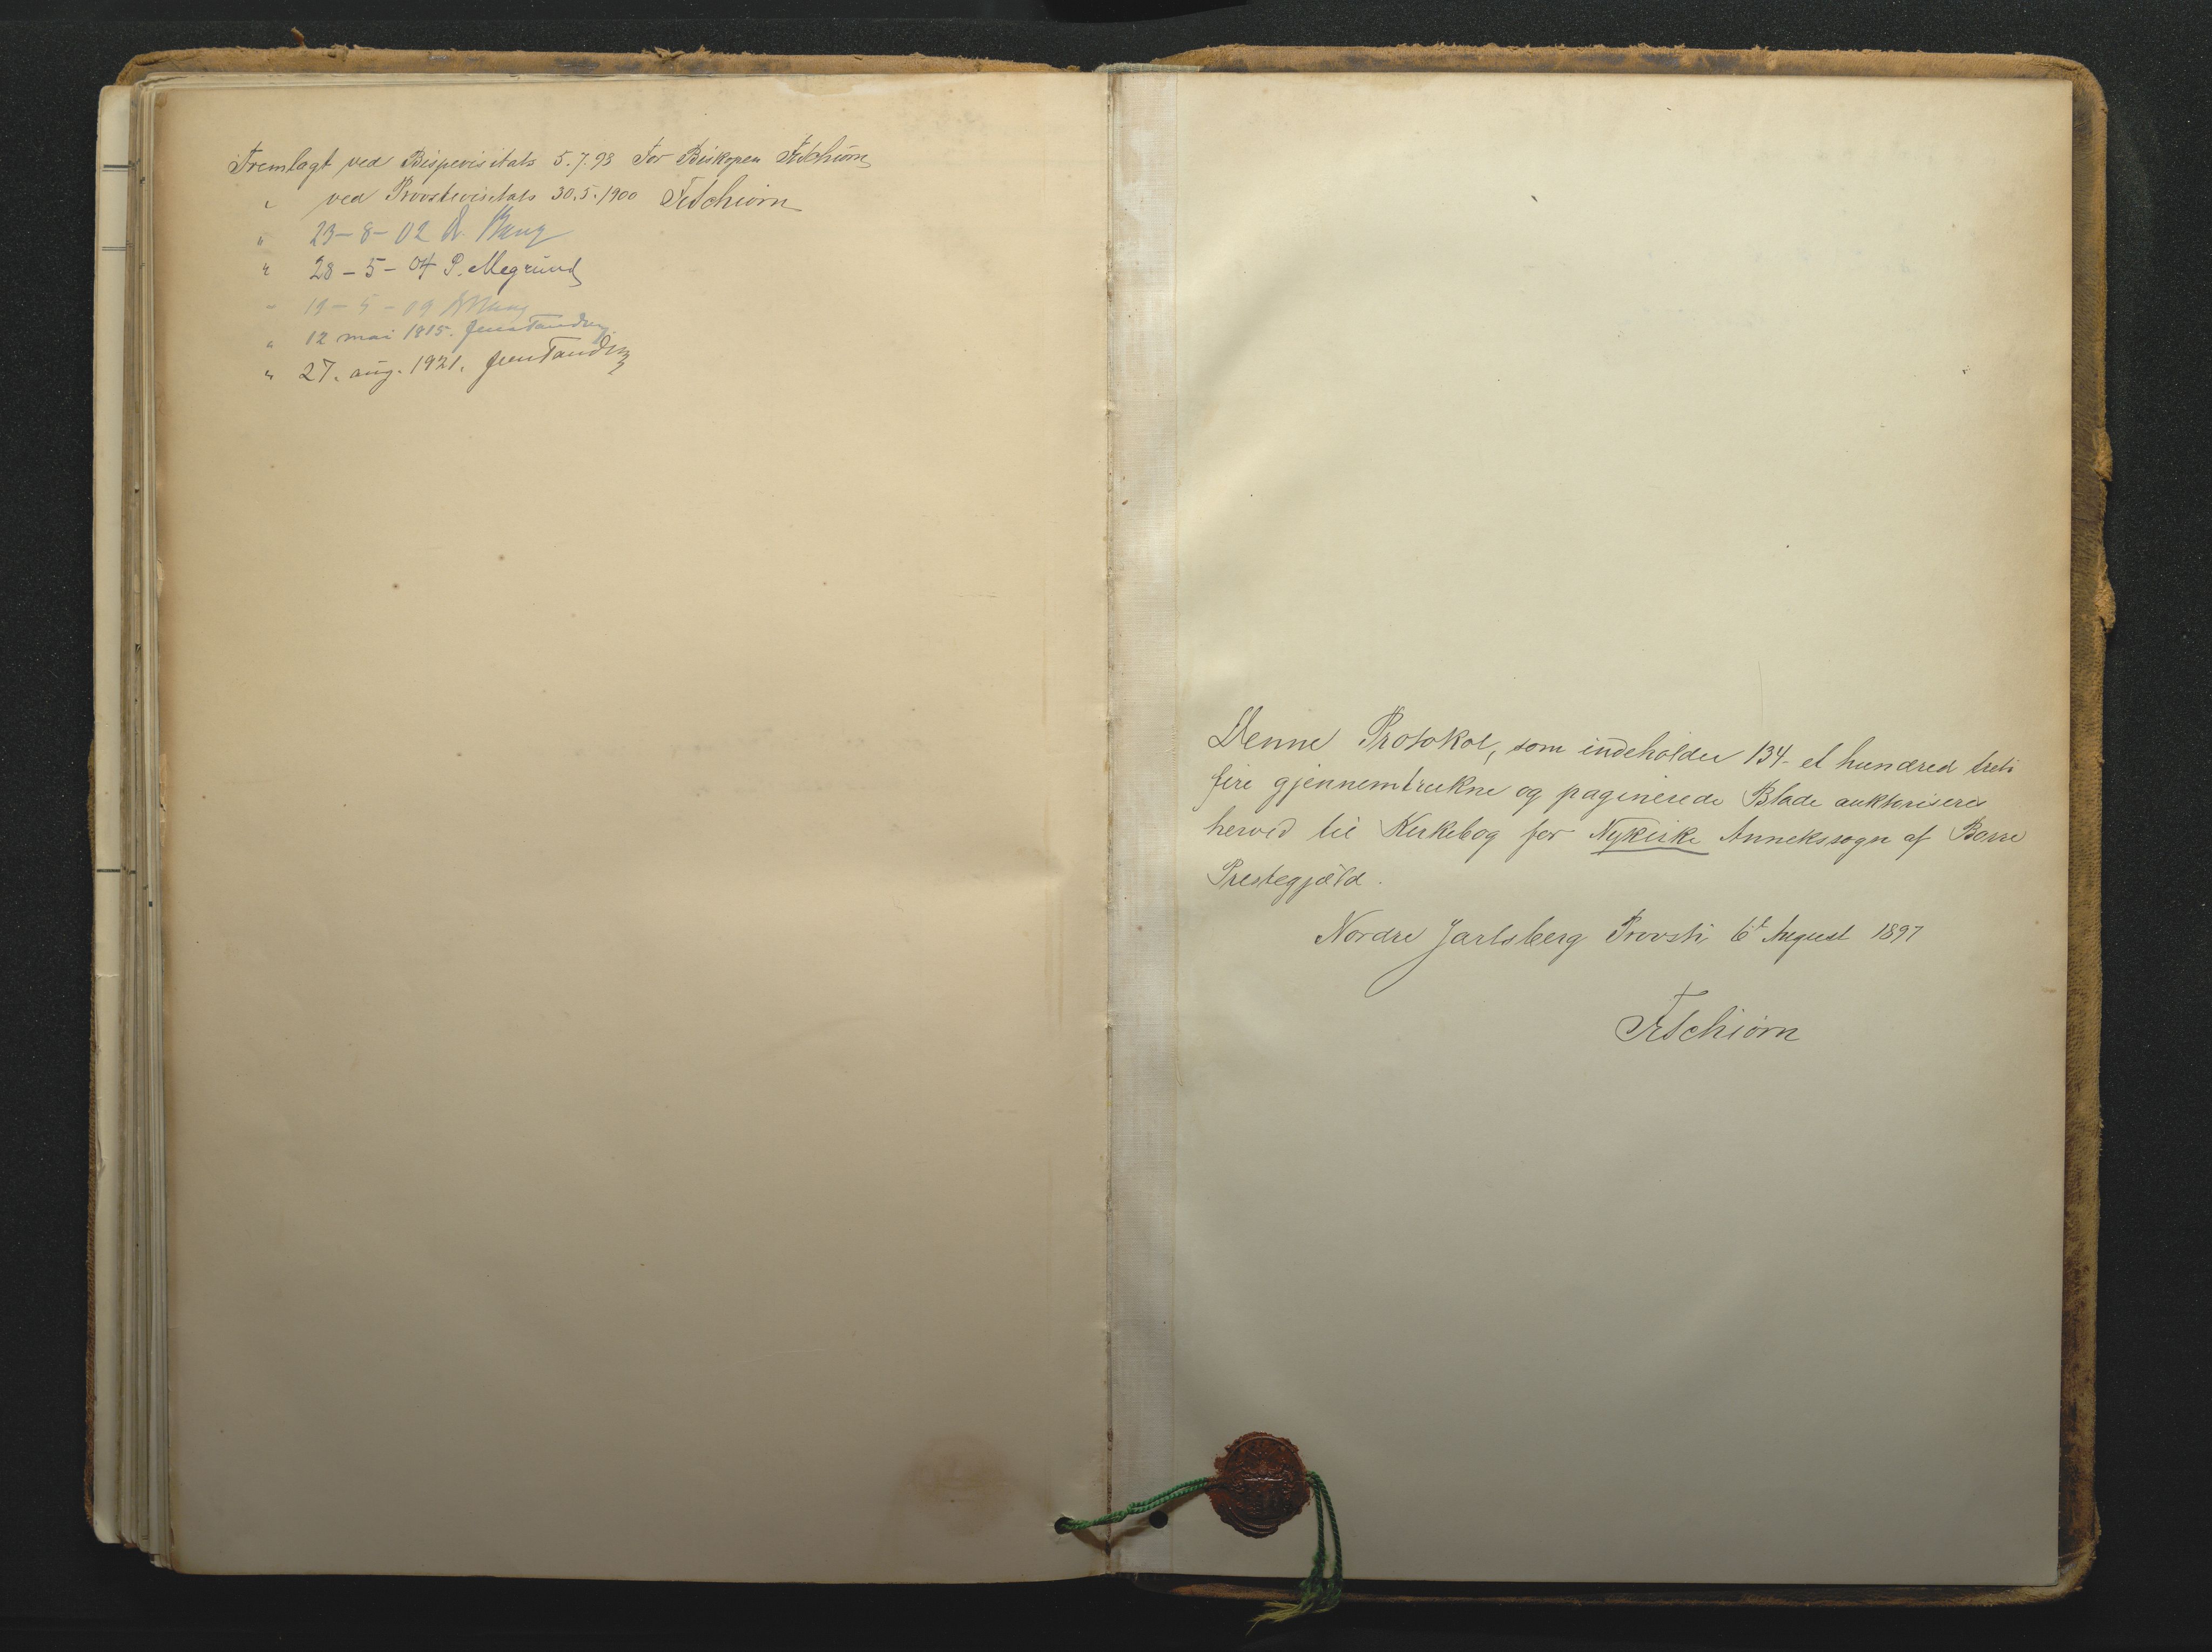 Fremlagt ved Bispevisitats 5.7.98 For Biskopen FrSchiørn
" ved Provstevisitats 30.5.1900 FrSchiørn
" 23-8-02 A. Bang
" 28-5-04 P. Megrund
" 19-5-09 ABang
" 12 mai 1915. Jens Tandberg
" 27. aug. 1921. Jens Tandberg
Denne Protokol, som indeholder 134- et hundred treti
fire gjennemtrukne og paginerede Blade aukthoriseres
herved til Kirkebog for Nykirke Annekssogn af Borre
Prestegjæld.
Nordre Jarlsberg Provsti 6t August 1897
FrSchiørn